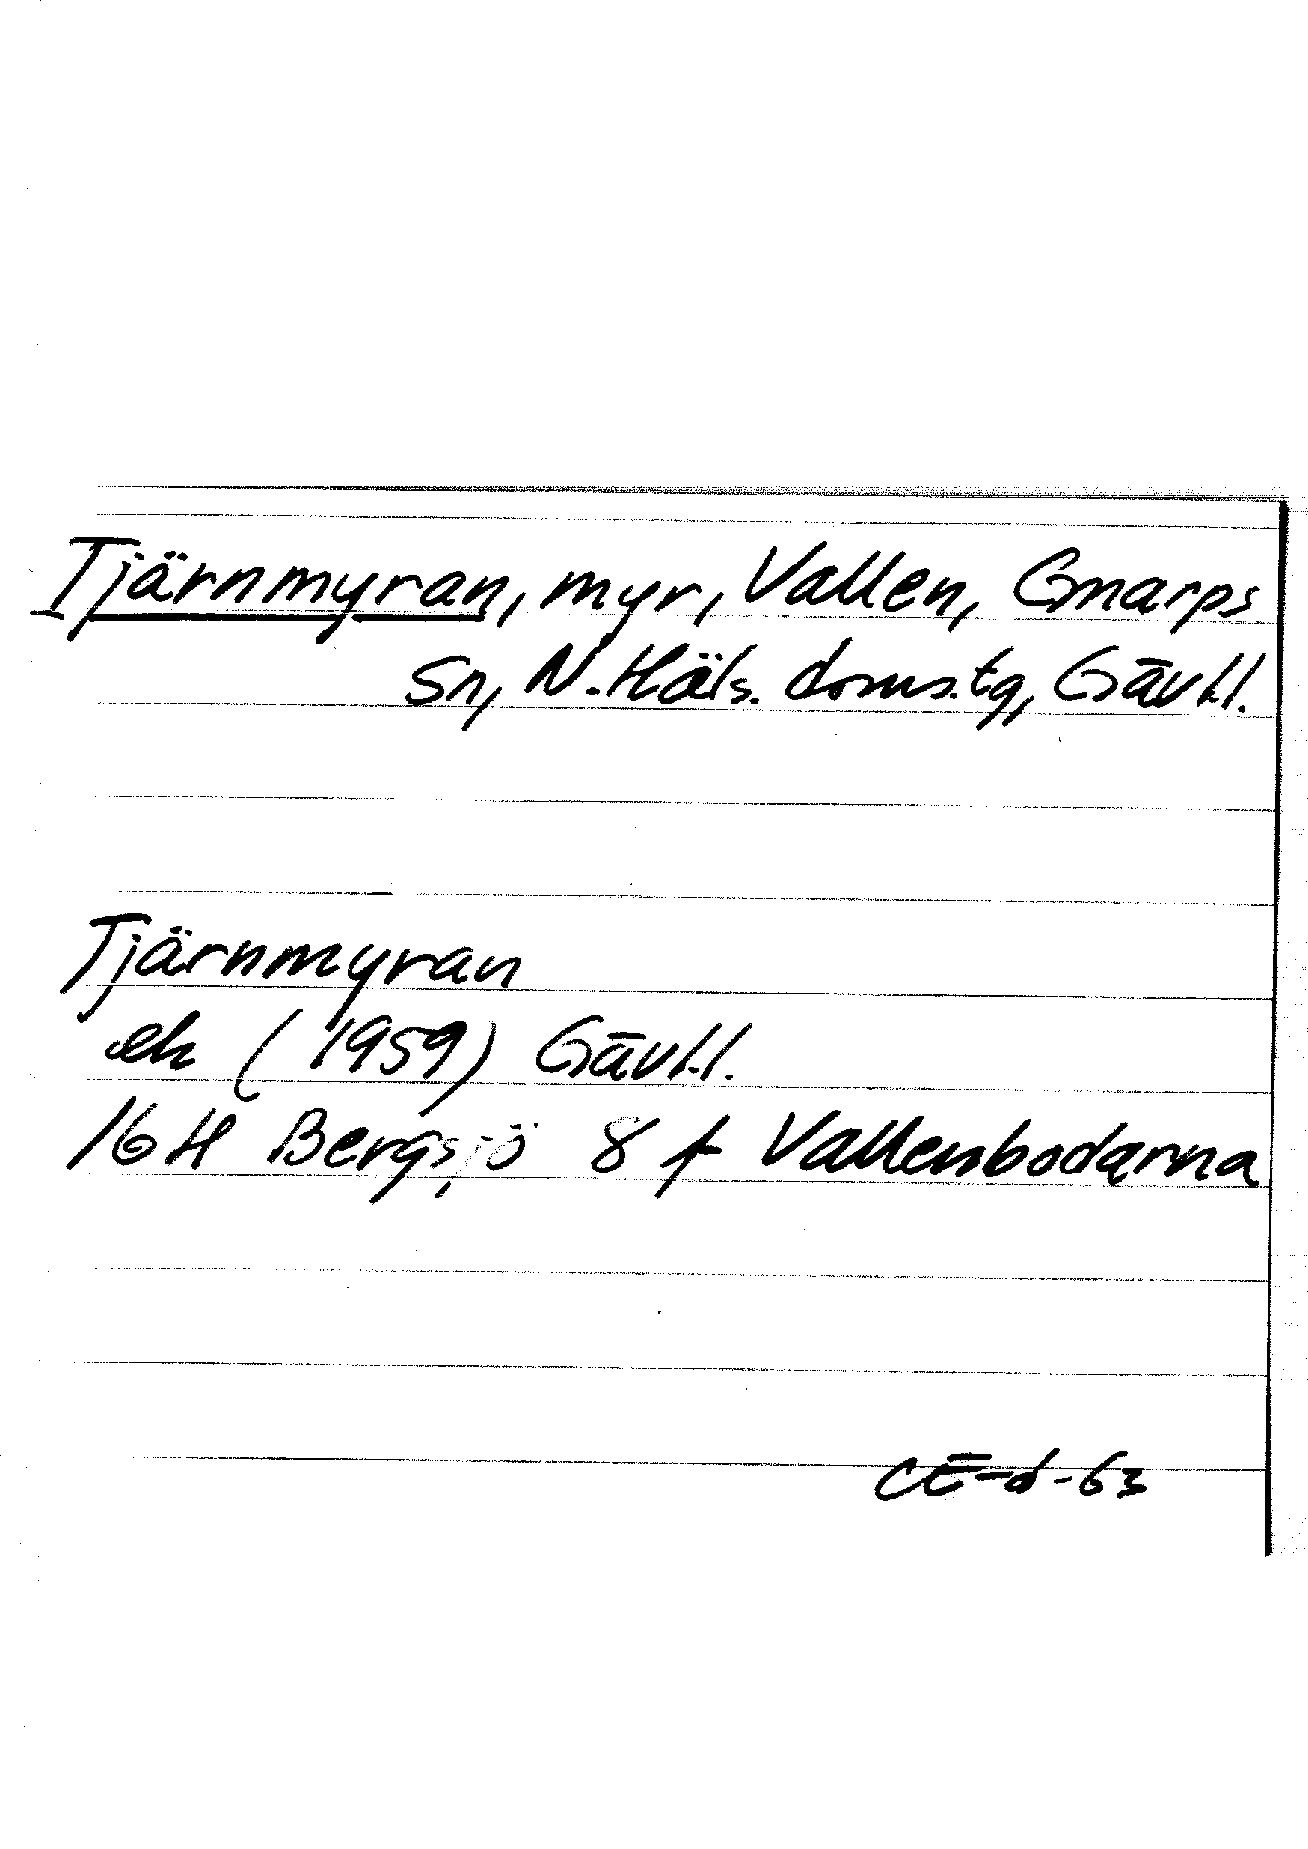 Tjärnmyran, myr, Vallen, Gnarps
Sn, N. Häls. doms.tg, Gävl.l.
Tjärnmyran
ek (1959) Gävl.l.
16 H Bergsjö 8 f Vallenbodarna
CE-d-63